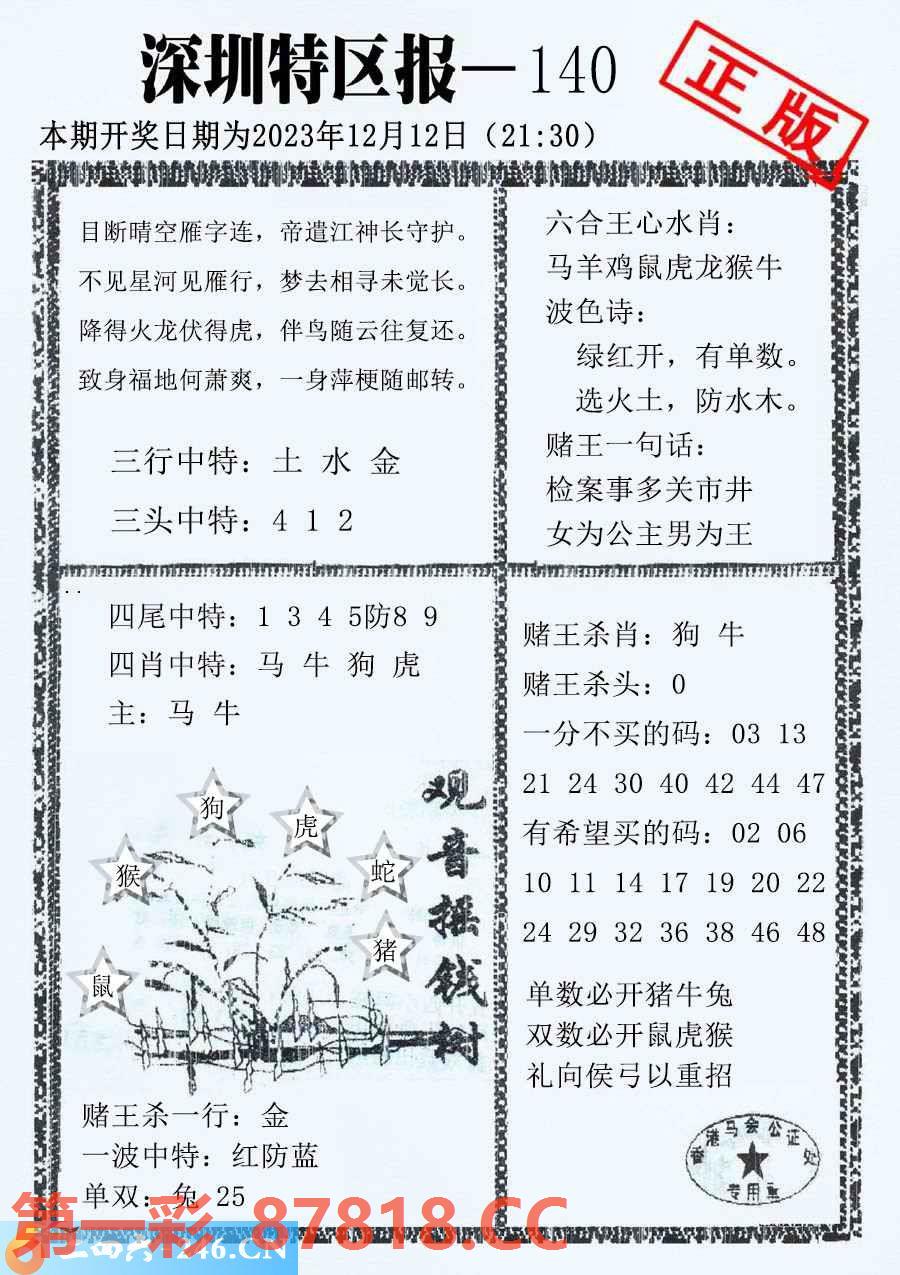 深圳特区报—140
正版
本期开奖日期为2023年12月12日（21:30）
目断晴空雁字连，帝遣江神长守护。
不见星河见雁行，梦去相寻未觉长。
降得火龙伏得虎，伴鸟随云往复还。
致身福地何萧爽，一身萍梗随邮转。
三行中特：土 水 金
三头中特：4 1 2
六合王心水肖：
马羊鸡鼠虎龙猴牛
波色诗：
绿红开，有单数。
选火土，防水木。
赌王一句话：
检案事多关市井
女为公主男为王
四尾中特：1 3 4 5防8 9
四肖中特：马 牛 狗 虎
主：马 牛
观音摇钱树
狗
虎
猴
蛇
猪
鼠
赌王杀一行：金
一波中特：红防蓝
单双：兔 25
赌王杀肖：狗 牛
赌王杀头：0
一分不买的码：03 13
21 24 30 40 42 44 47
有希望买的码：02 06
10 11 14 17 19 20 22
24 29 32 36 38 46 48
单数必开猪牛兔
双数必开鼠虎猴
礼向侯弓以重招
香港马会公证处
专用章
第一彩 87818.CC
246.CN